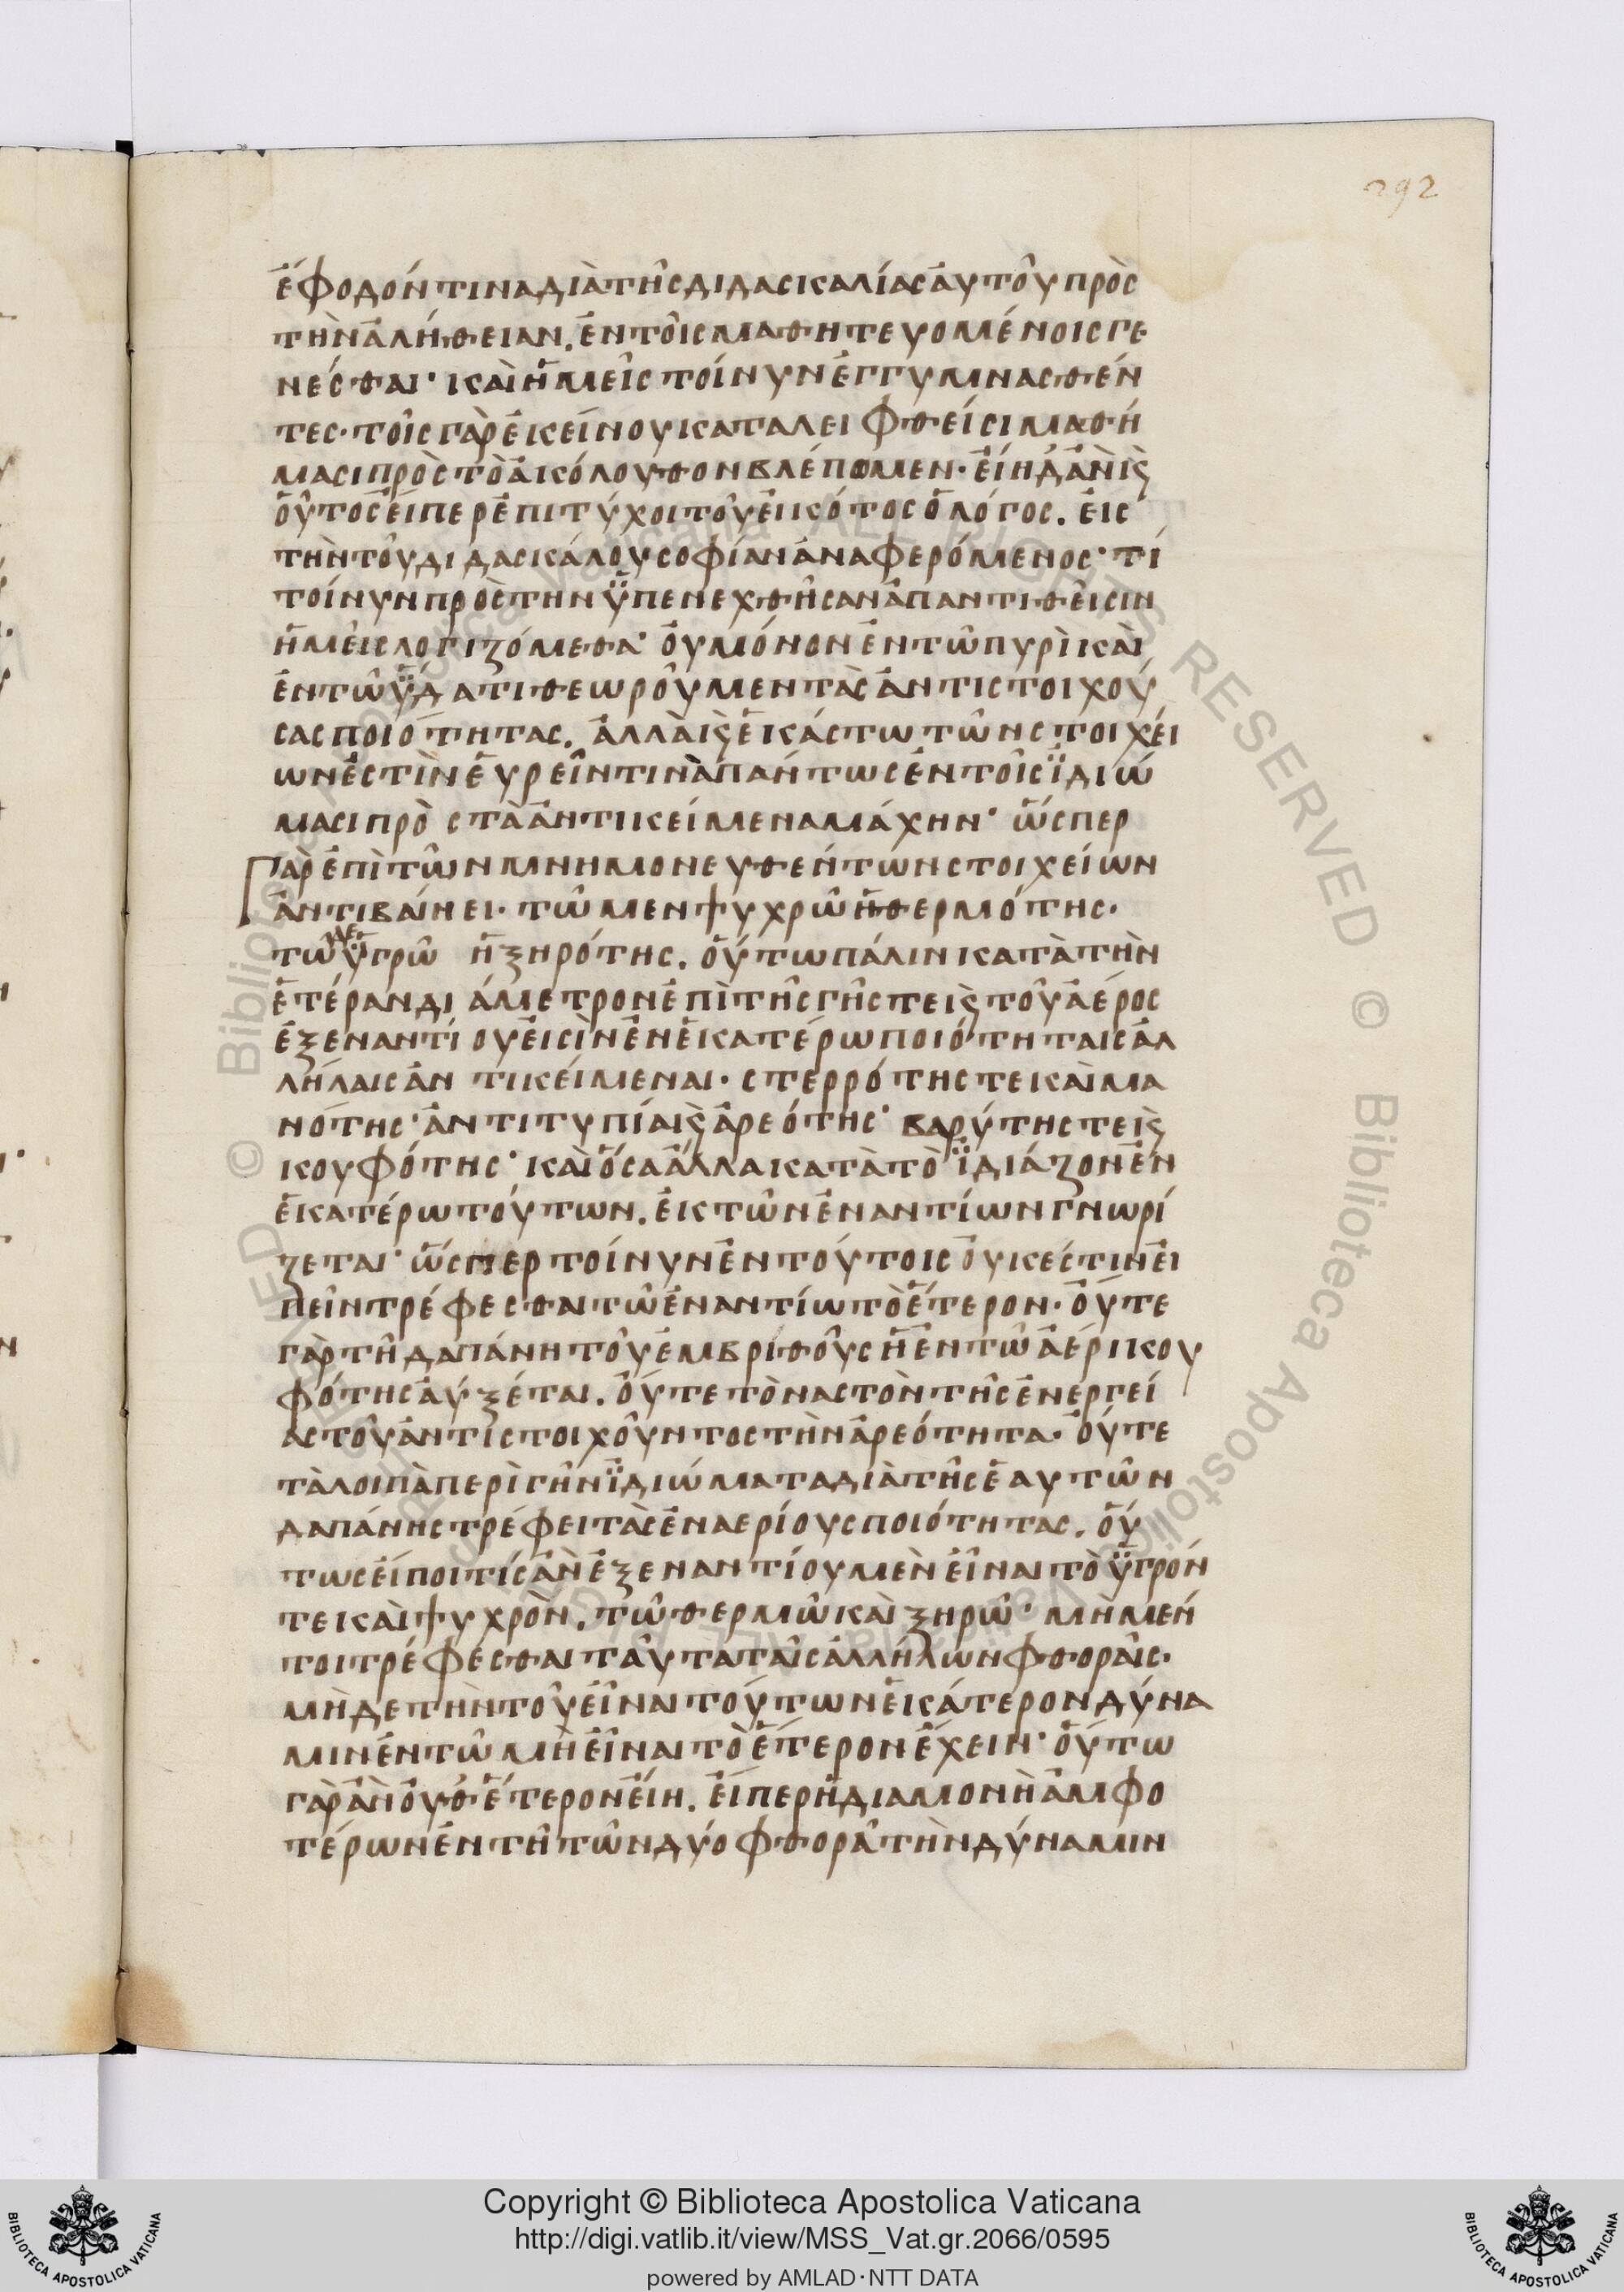 292
ἔφοδόν τινα διὰ τῆς διδασκαλίας αὐτοῦ πρὸς
τὴν ἀλήθειαν. ἐν τοῖς μαθητευομένοις γε
νέσθαι· καὶ ἡμεῖς τοίνυν ἐγγυμνασθέν
τες· τοῖς γὰρ ἐκείνου καταλειφθεῖσι μαθή
μασι πρὸς τὸ ἀκόλουθον βλέπομεν· εἴη δ' ἂν ϗ
οὗτος εἴπερ ἐπιτύχοι τοῦ εἰκότος ὁ λόγος. εἰς
τὴν τοῦ διδασκάλου σοφίαν ἀναφερόμενος· τί
τοίνυν πρὸς τὴν ὑπενεχθῆσαν ἀπαντιθεῖσιν
ἡμεῖς λογιζόμεθα· οὐ μόνον ἐν τῶ πυρὶ καὶ
ἐν τῶ ὕδατι θεωροῦμεν τὰς ἀντιστοιχού
σας ποιότητας. ἀλλὰ ϗ ἑκάστω τῶν στοιχεί
ων ἐστὶν εὑρεῖν τινὰ πάντως ἐν τοῖς ἰδιώ
μασι πρὸς τὰ ἀντικείμενα μάχην· ὥσπερ
γὰρ ἐπὶ τῶν μνημονευθέντων στοιχείων
ἀντιβαίνει· τῶ μὲν ψυχρῶ ἡ θερμότης·
τῶ δὲ ὑγρῶ ἡ ξηρότης. οὕτω πάλιν κατὰ τὴν
ἑτέραν διάμετρον ἐπὶ τῆς γῆς τε ϗ τοῦ ἀέρος
ἐξεναντίου εἰσὶν ἐν ἑκατέρω ποιότηται σἀλ
λήλαις ἀντικείμεναι· στερρότης τε καὶ μα
νότης· ἀντιτυπία ϗ ἀρεότης· βαρύτης τε ϗ
κουφότης· καὶ ὅσα ἄλλα κατὰ τὸ ἰδιάζον ἐν
ἑκατέρω τούτων. ἐκ τῶν ἐναντίων γνωρί
ζεται· ὥσπερ τοίνυν ἐν τούτοις οὐκ έστιν εἰ
πεῖν τρέφεσθαι τῶ ἐναντίω τὸ ἕτερον· οὔτε
γὰρ τῆ δαπάνη τοῦ ἐμβριθοῦς ἡ ἐν τῶ ἀέρι κου
φότης αὐξέται. οὔτε τὸ ναστὸν τῆς ἐνεργεί
ας τοῦ ἀντιστοιχοῦντος τὴν ἀρεότητα· οὔτε
τὰ λοιπὰ περὶ γῆν ἰδιώματα διὰ τῆς ἑαυτῶν
δαπάνης τρέφει τὰς ἐναερίους ποιότητας. οὕ
τως εἴποι τίς ἂν ἐξεναντίου μὲν εἶναι τὸ ὑγρόν
τε καὶ ψυχρὸν. τῶ θερμῶ καὶ ξηρῶ· μὴ μέν
τοι τρέφεσθαι ταῦτα ταῖς ἀλλήλων φθοραῖς·
μὴ δὲ τὴν τοῦ εἶναι τούτων ἑκάτερον δύνα
μιν ἐν τῶ μὴ εἶναι τὸ ἕτερον ἔχειν· οὕτω
γὰρ ἂν οὐθ' ἕτερον εἴη. εἴπερ ἡ διαμονὴ ἀμφο
τέρων ἐν τῆ τῶν δύο φθορᾶ τὴν δύναμιν
Copyright © Biblioteca Apostolica Vaticana
http://digi.vatlib.it/view/MSS_Vat.gr.2066/0595
powered by AMLAD·NTT DATA
BIBLIOTECA APOSTOLICA VATICANA
BIBLIOTECA APOSTOLICA VATICANA